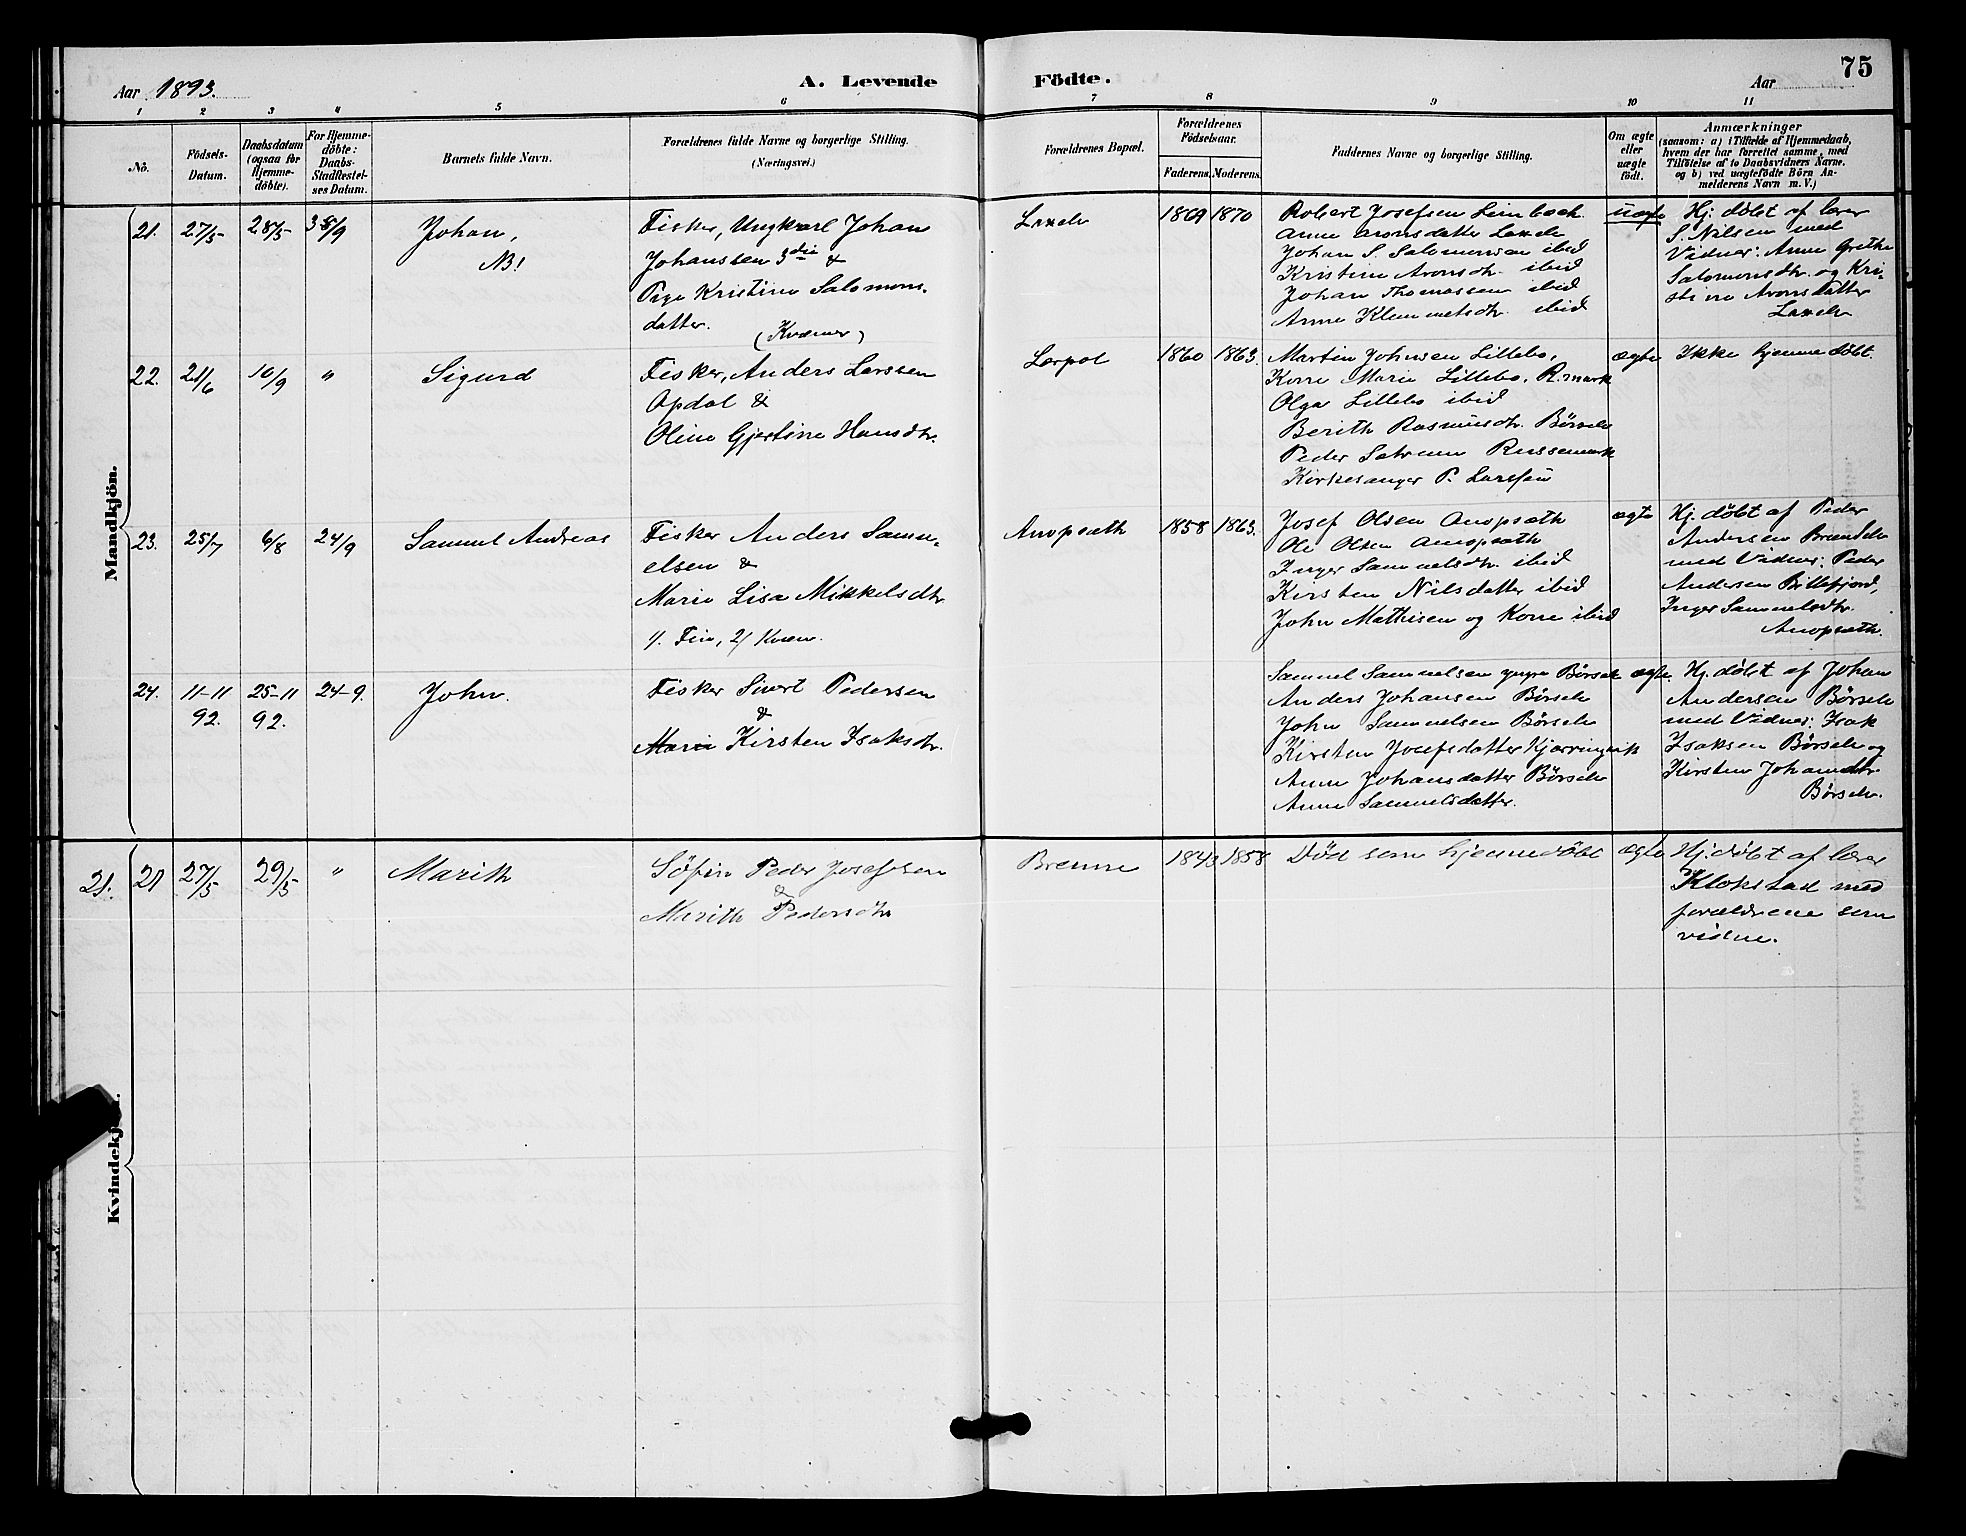 Aar 1893.
A. Levende
Födte.
Aar
75
1 2 3 4 5 6 7 8 9 10 11
No.
Födsels-
Datum.
Daabsdatum
(ogsaa for
Hjemme-
döbte).
For Hjemme-
döbte:
Daabs-
Stadfæstel-
ses Datum.
Barnets fulde Navn.
Forældrenes fulde Navne og borgerlige Stilling.
(Næringsvei.)
Forældrenes Bopæl.
Forældrenes
Födselsaar.
Faderens. Moderens.
Faddernes Navne og borgerlige Stilling.
Om ægte
eller
uægte
födt.
Anmærkninger
(saasom: a) i Tilfælde af Hjemmedaab,
hvem der har forrettet samme, med
Tilföielse af to Daabsvidners Navne.
og b) ved uægtefödte Börn An-
melderens Navn m. V.)
Mandkjön.
21. 27/5 28/5 /9
Johan,
NB!
Fisker, Ungkarl Johan
Johanssen 3die &
Pige Kristine Salomons-
datter.
(Kvæner)
Laxelv
1869 1870
Robert Josefsen Leinbach
Anne Aronsdatter Laxelv
Johan S. Salomonsen ibid
Kristine Aronsdtr. ibid
Johan Thomassen ibid
Anne Klemmetsdtr. ibid
uægte
Hj. døbt af lærer
S. Nilsen med
Vidner: Anne Grethe
Salomonsdtr. og Kri-
stine Aronsdatter
Laxelv
22. 21/6 10/9 "
Sigurd
Fisker, Anders Larssen
Opdal &
Oline Gjertine Hansdtr.
Lerpol
1860 1863.
Martin Johnsen Lillebo,
Korre Marie Lillebo. R.mark
Olga Lillebo ibid
Berith Rasmusdtr. Børselv
Peder Sætrum Russemark
Kirkesanger P. Larssen
ægte
Ikke hjemmedøbt.
23. 25/7 6/8 24/9
Samuel Andreas
Fisker Anders Samu-
elsen &
Marie Lisa Mikkelsdtr.
1/. Fin, 2/ Kvæn.
Anopsæth
1858 1863.
Josef Olsen Anopsæth
Ole Olsen Anopsæth
Inger Samuelsdtr. ibid
Kirsten Nilsdatter ibid
John Mathisen og Korre ibid
ægte
Hj. døbt af Peder
Andersen Brændelv
med Vidner: Peder
Andersen Billefjord,
Inger Samuelsdtr.
Anopsæth.
24. 11-11 25-11 24-9.
92. 92.
John.
Fisker Sivert Pedersen
&
Marie Kirsten Isaksdtr.
Samuel Samuelsen yngre Børselv
Anders Johansen Børselv
John Samuelsen Børselv
Kirsten Josefsdatter Kjærringvik
Anne Johansdatter Børselv
Anne Samuelsdatter.
ægte.
Hj. døbt af Johan
Andersen Børselv
med Vidner: Isak
Isaksen Børselv og
Kirsten Johansdtr.
Børselv.
Kvindekjön.
21. 21 27/5 29/5 "
Marith
Søfin Peder Josefsen
&
Marith Pedersdtr
Brenne
1843 1858
Død som hjemmedøbt
ægte
Hj. døbt af lærer
Klokstad med
forældrene som
vidne.